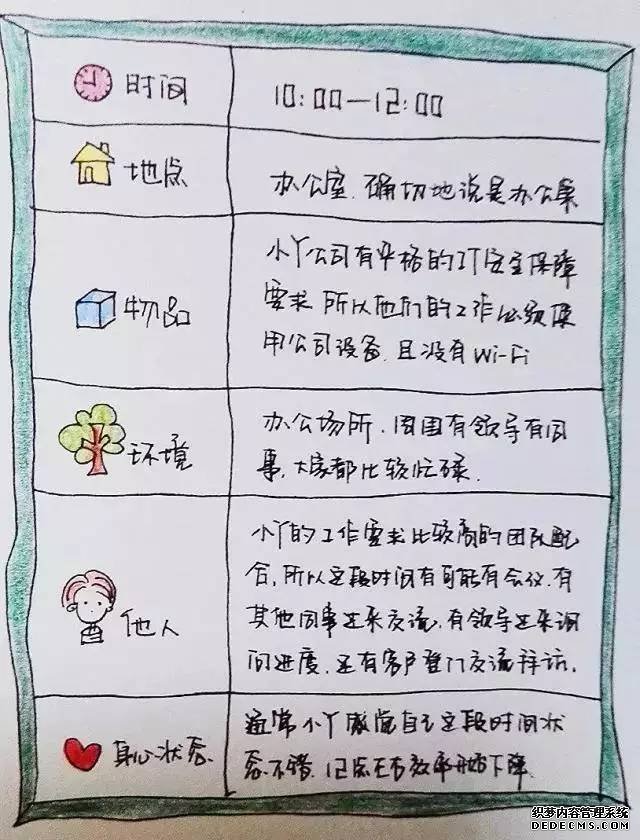 时间
10:00—12:00
地点
办公室.确切地说是办公桌
物品
小丫公司有严格的IT安全保障
要求.所以他们的工作必须使
用公司设备.且没有Wi-Fi
环境
办公场所.周围有领导有同
事,大家都比较忙碌.
他人
小丫的工作要求比较高的团队配
合,所以这段时间有可能有会议.有
其他同事过来交流,有领导过来询
问进度.还有客户登门交流拜访.
身心状态.
通常小丫感觉自己这段时间状
态不错.12点左右效率开始下降.
织梦内容管理系统
DEDECMS.COM